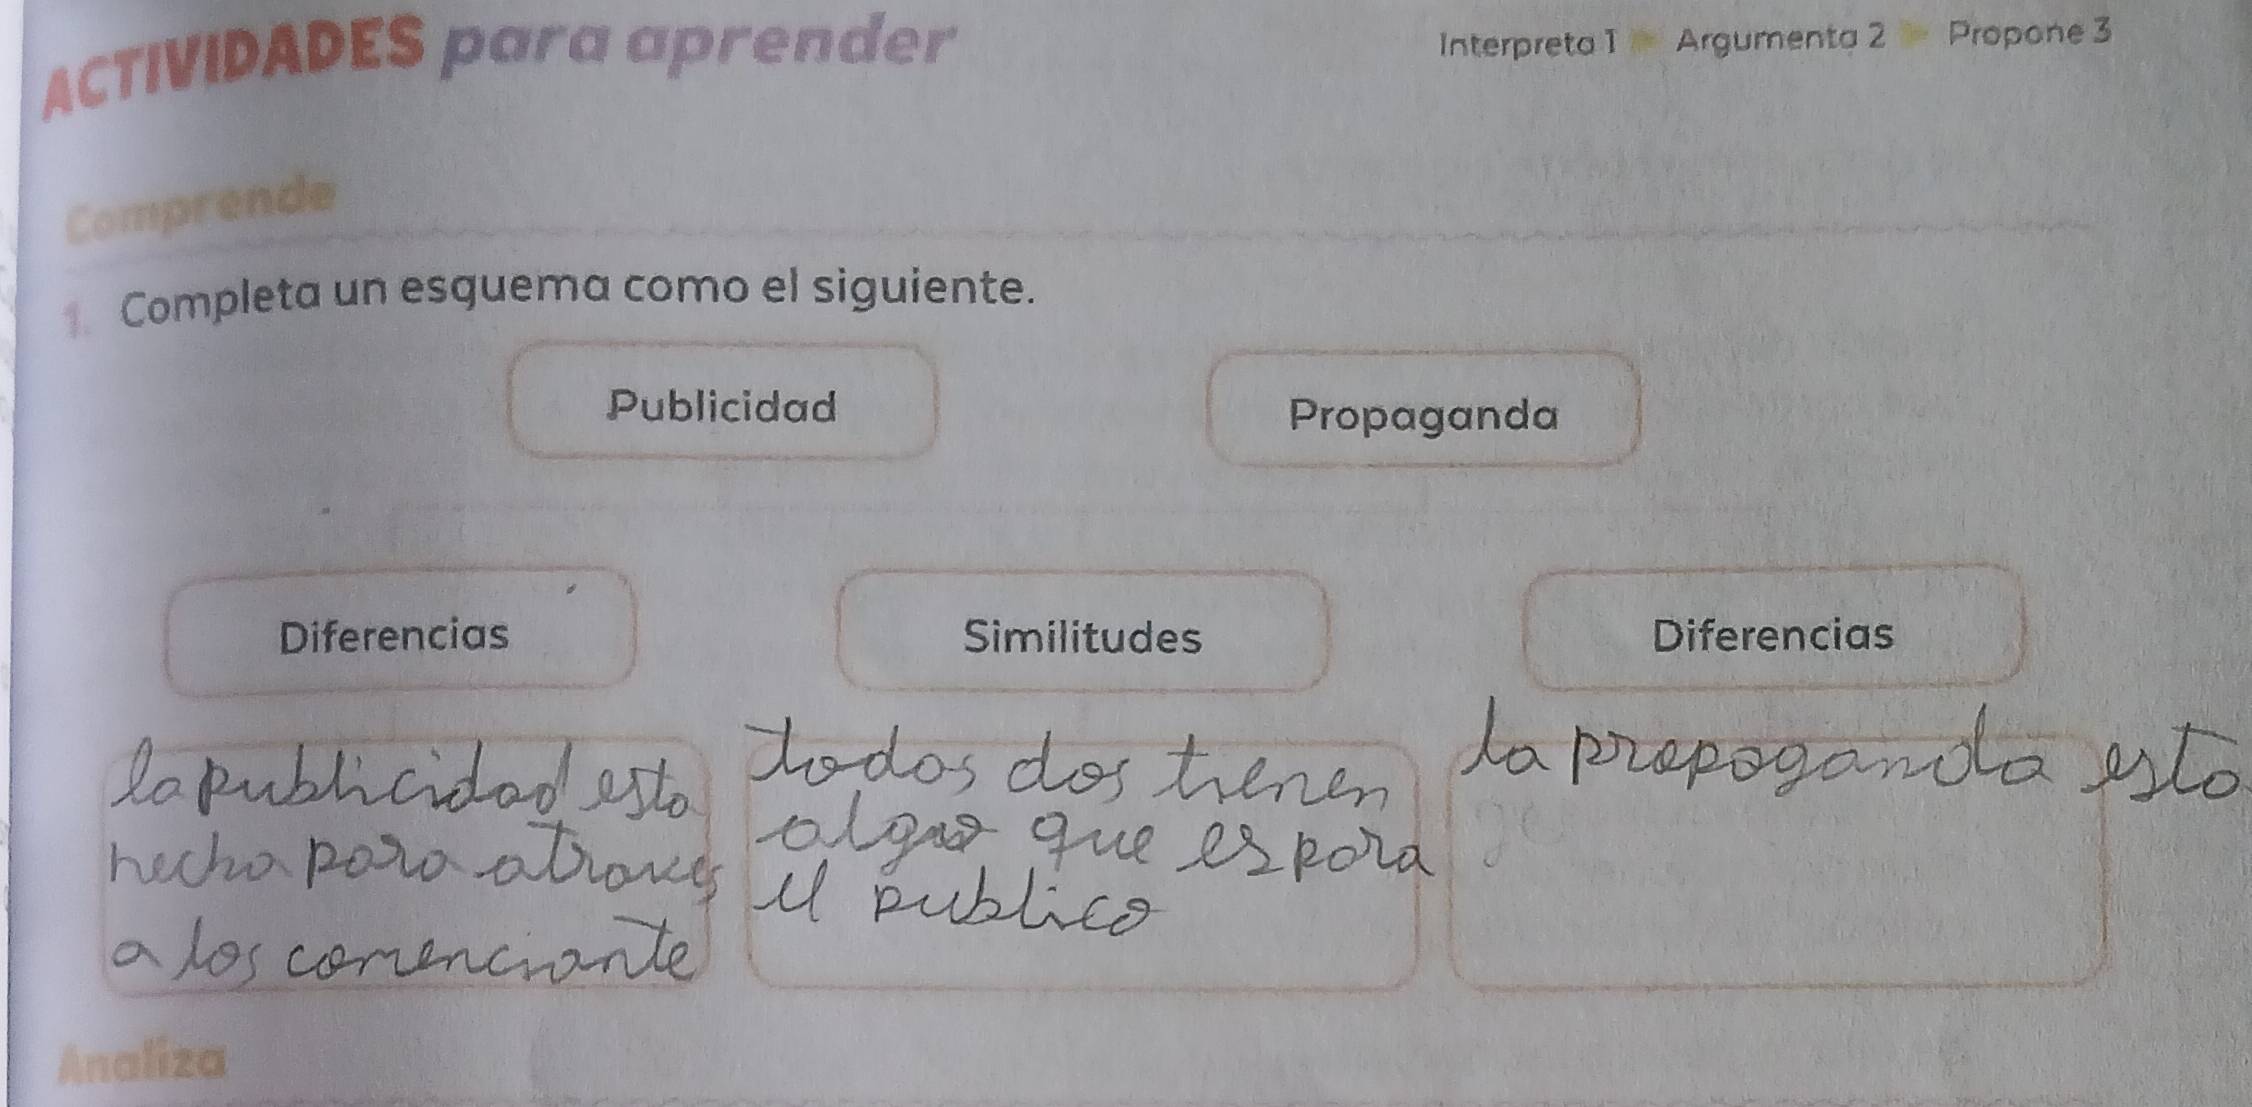 ACTIVIDADES para aprender
Interpreta 1 Argumenta 2 Propone 3
Comprende
1. Completa un esquema como el siguiente.
Publicidad
Propaganda
Diferencias
Similitudes
Diferencias
la publicidad esta
hecha para atraves
a los comenciante
todos dos tienen
algo que es para
el publico
la propoganda esta
Analiza